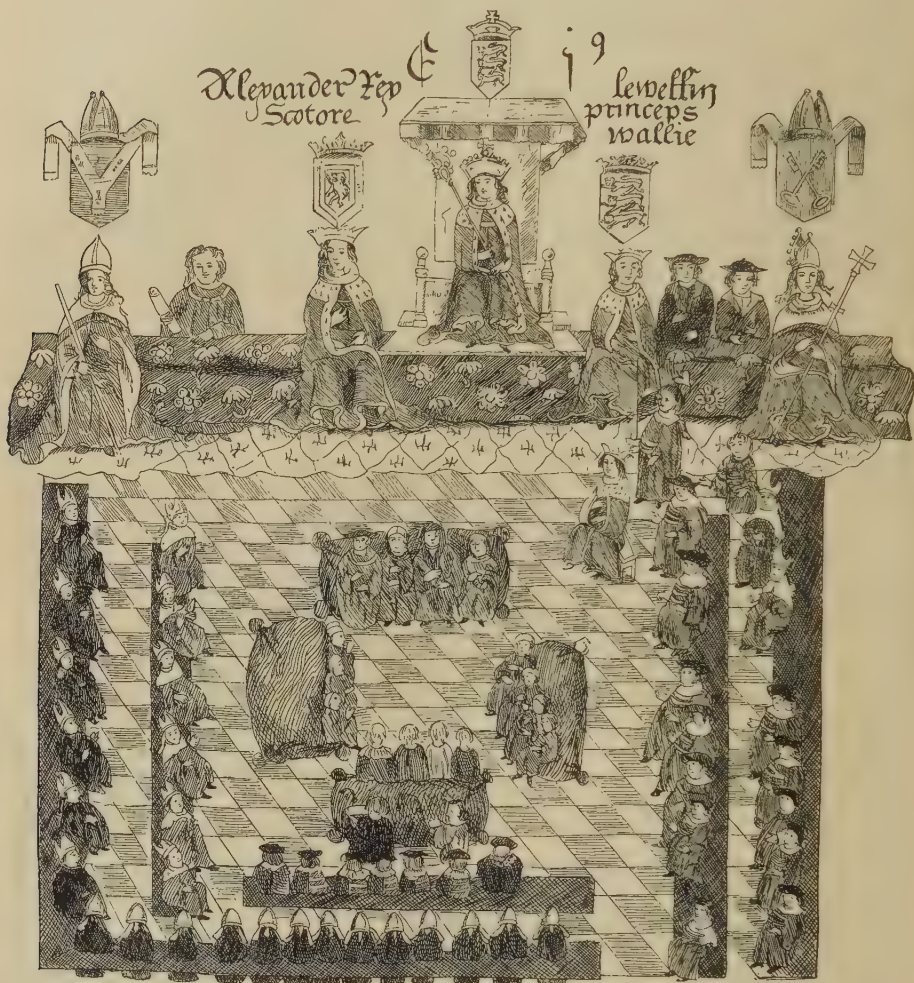 Alexander Rex
Scotore
E j 9
lewellin
princeps
wallie